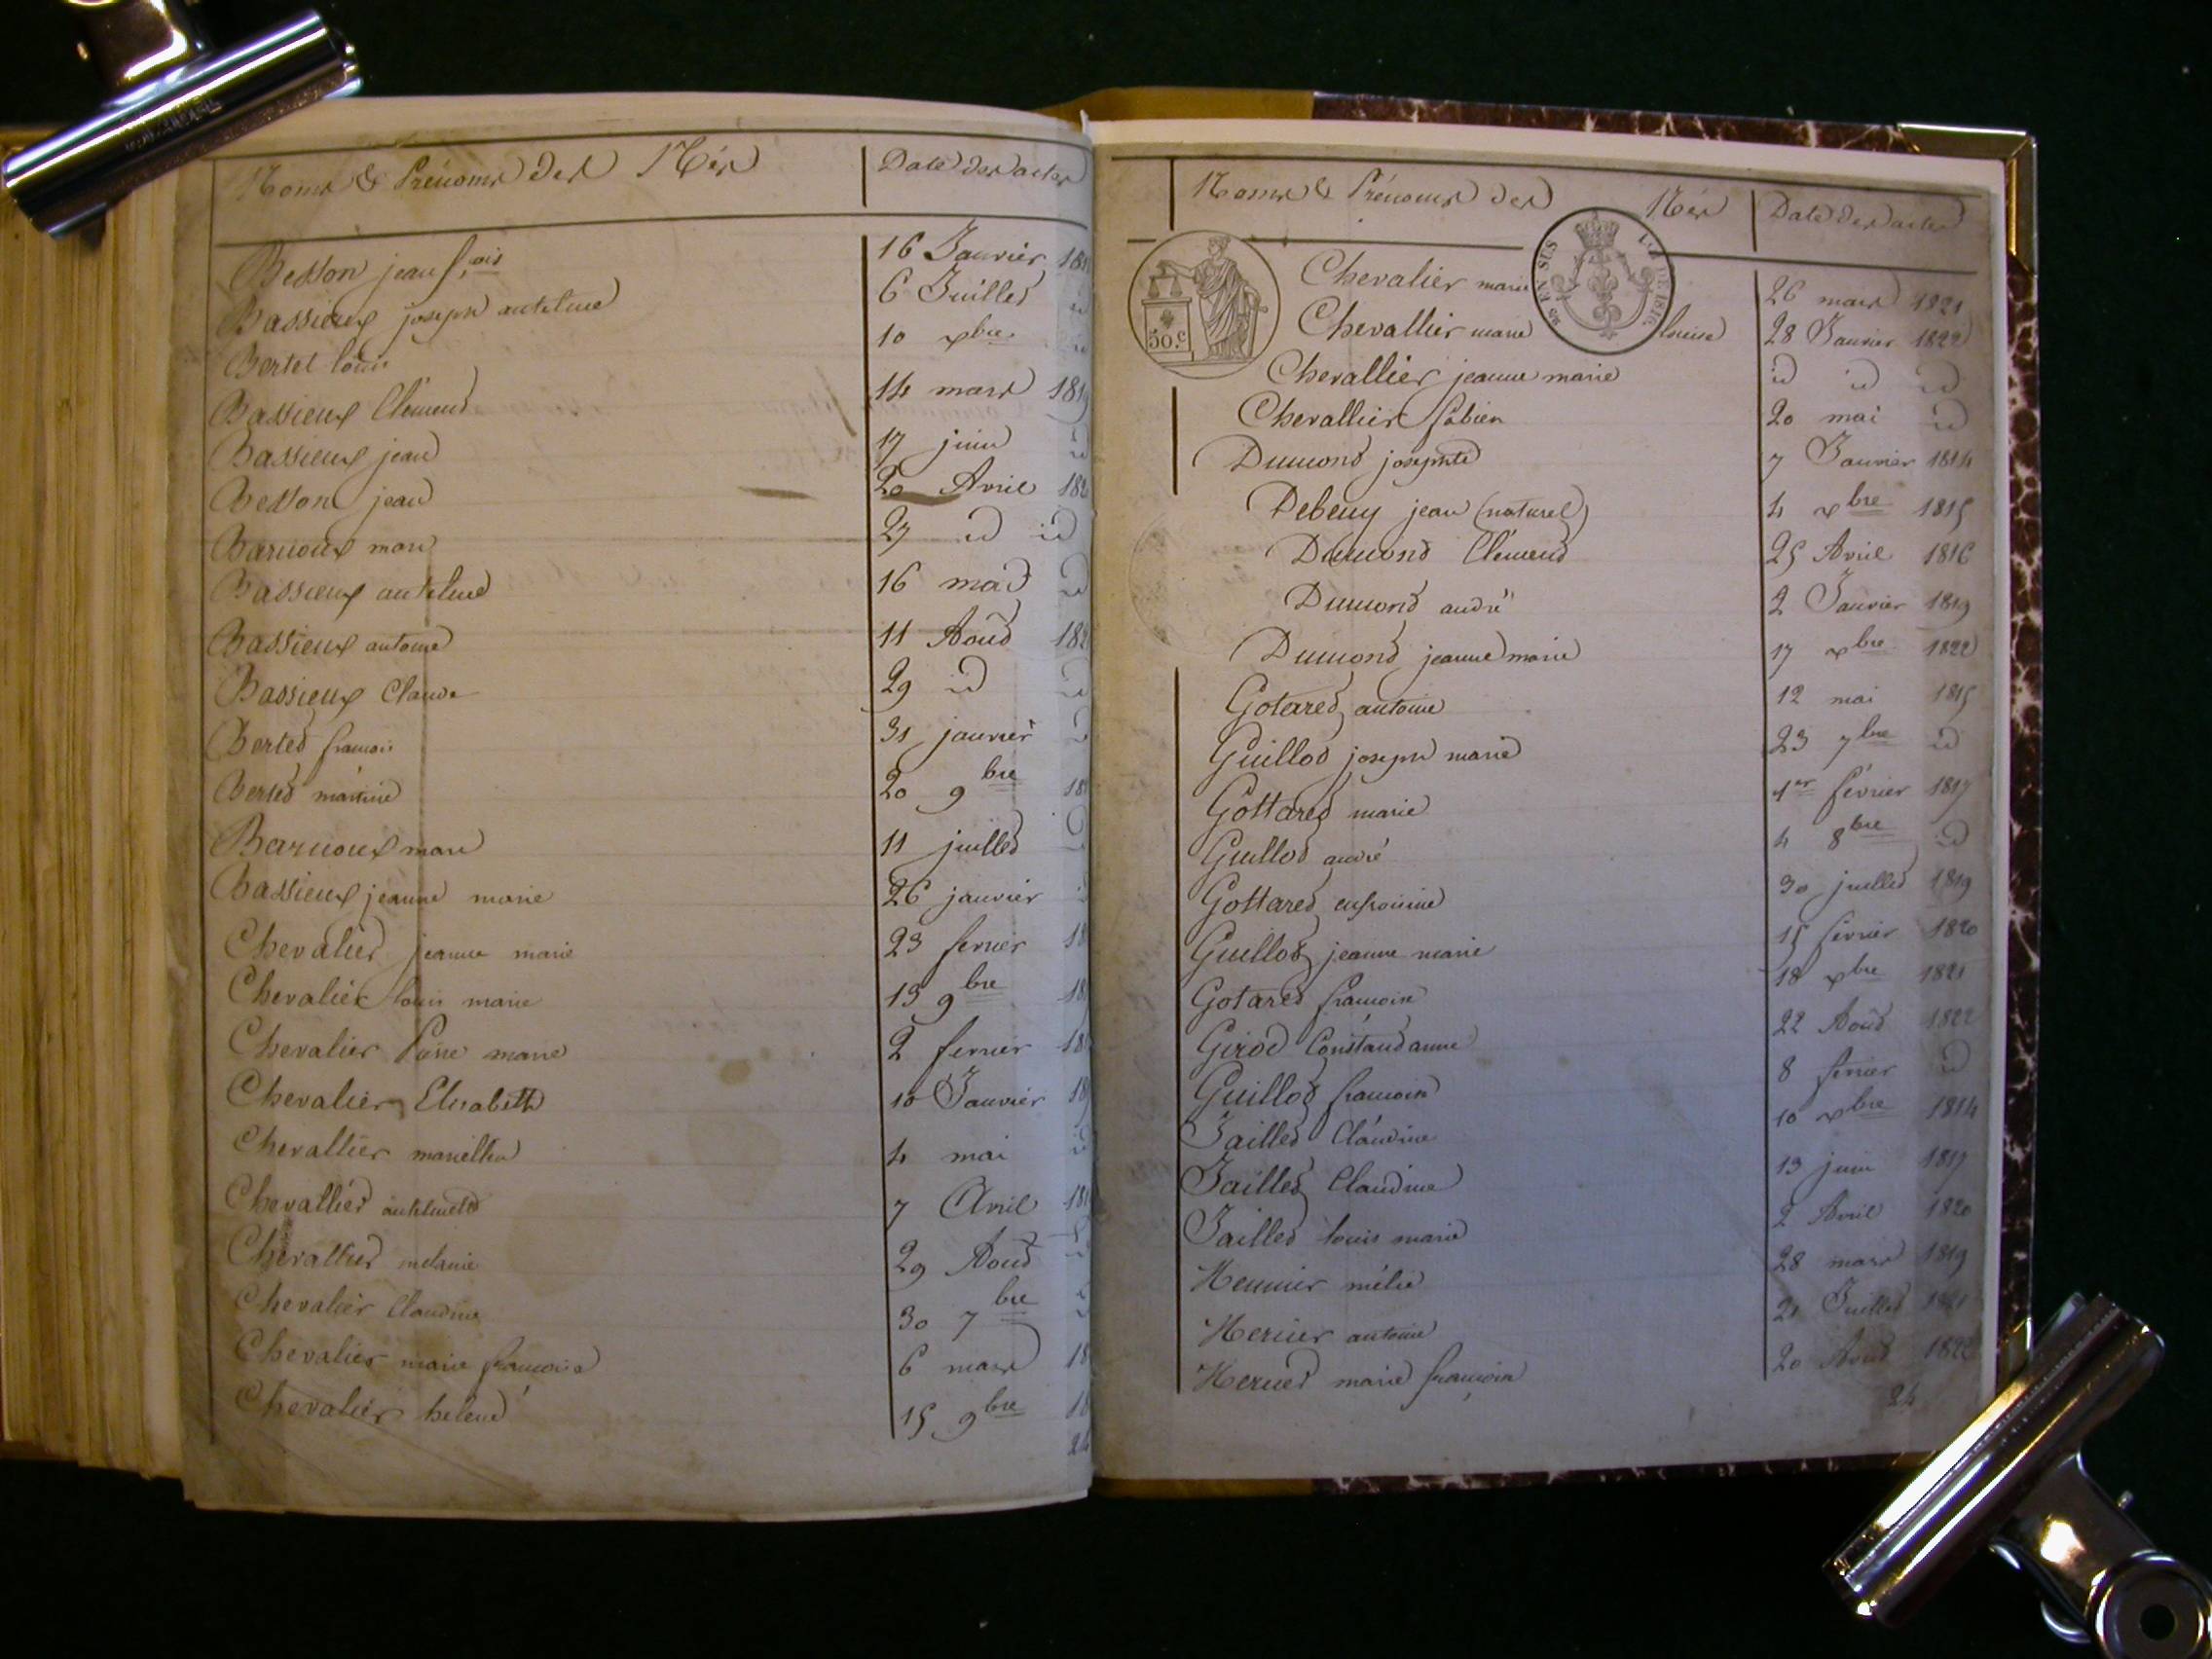 Noms & Prénoms des Nés Date des actes
Besson jean f.ois 16 Janvier
Bassieux joseph antelme 6 Juillet id
Bertet louis 10 xbre id
Bassieux Clément 14 mars 1819
Bassieux jean 17 juin id
Besson jean 20 Avril 182
Barnoux marie 27 id id
Bassieux antelme 16 mai id
Bassieux antoine 11 Août 182
Bassieux Claude 29 id id
Bertet francois 31 janvier id
Bertet 20 9bre 18
Barnoux marie 11 juillet
Bassieux jeanne marie 26 janvier
Chevalier jeanne marie 23 fevrier 18
Chevalier louis marie 13 9bre 18
Chevalier Pierre marie 2 fevrier 18
Chevalier Elisabeth 10 Janvier 18
Chevallier 4 mai id
Chevallier 7 Avril 181
Chevallier melanie 29 Août id
Chevalier Claudine 30 7bre id
Chevalier marie francoise 6 mars 18
Chevalier helene 15 9bre 18
24
Noms & Prénoms des Nés Date des actes
50.c
EN SUS
LOI DE 1816
Chevalier marie 26 mars 1821
Chevallier marie louise 28 Janvier 1822
Chevallier jeanne marie id id id
Chevallier fabien 20 mai id
Dumond josephte 7 Janvier 1814
Debeuy jean (naturel) 4 xbre 1815
Dumond Clément 25 Avril 1816
Dumond andré 2 Janvier 1819
Dumond jeanne marie 17 xbre 1822
Gotared antoine 12 mai 1815
Guillod joseph marie 23 7bre id
Gottared marie 1er février 1817
Guillod andré 4 8bre id
Gottared eufrosine 30 juillet 1819
Guillod jeanne marie 15 fevrier 1820
Gotared francoise 18 xbre 1821
Girod Constand anne 22 Août 1822
Guillod francoise 8 fevrier id
Jaillet Claudine 10 xbre 1814
Jaillet Claudine 13 juin 1817
Jaillet louis marie 2 Avril 1820
Meunier mélie 28 mars 1819
Mercier antoine 21 Juillet 1821
Mercier marie françoise 20 Août 1822
24